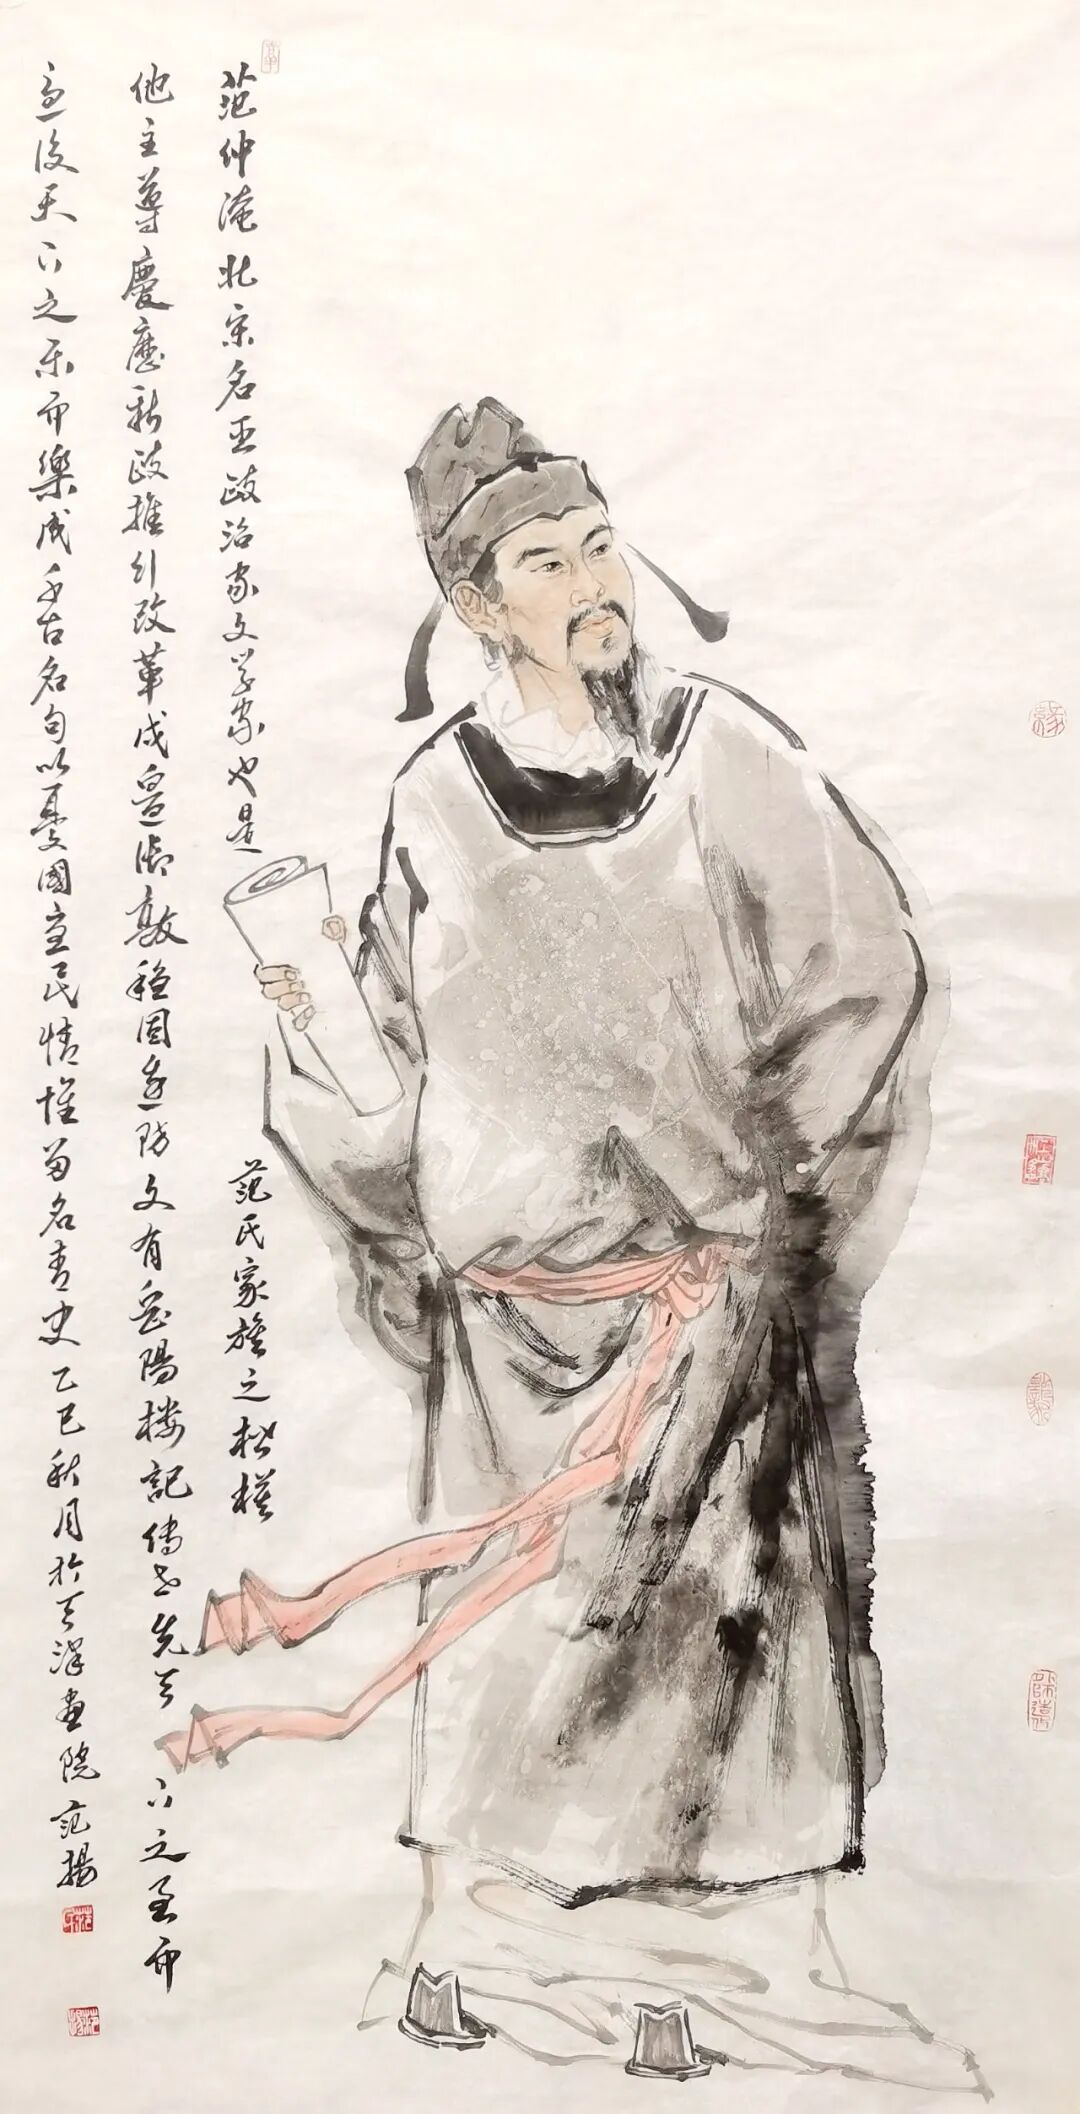 范仲淹北宋名臣政治家文学家也是
范氏家族之楷模
他主導慶歷新政推行改革戍邊御敵穩固邊防文有岳陽楼記傳世先天下之憂而
憂後天下之乐而樂成千古名句以憂國憂民情懷留名青史乙巳秋月於天泽画院范揚